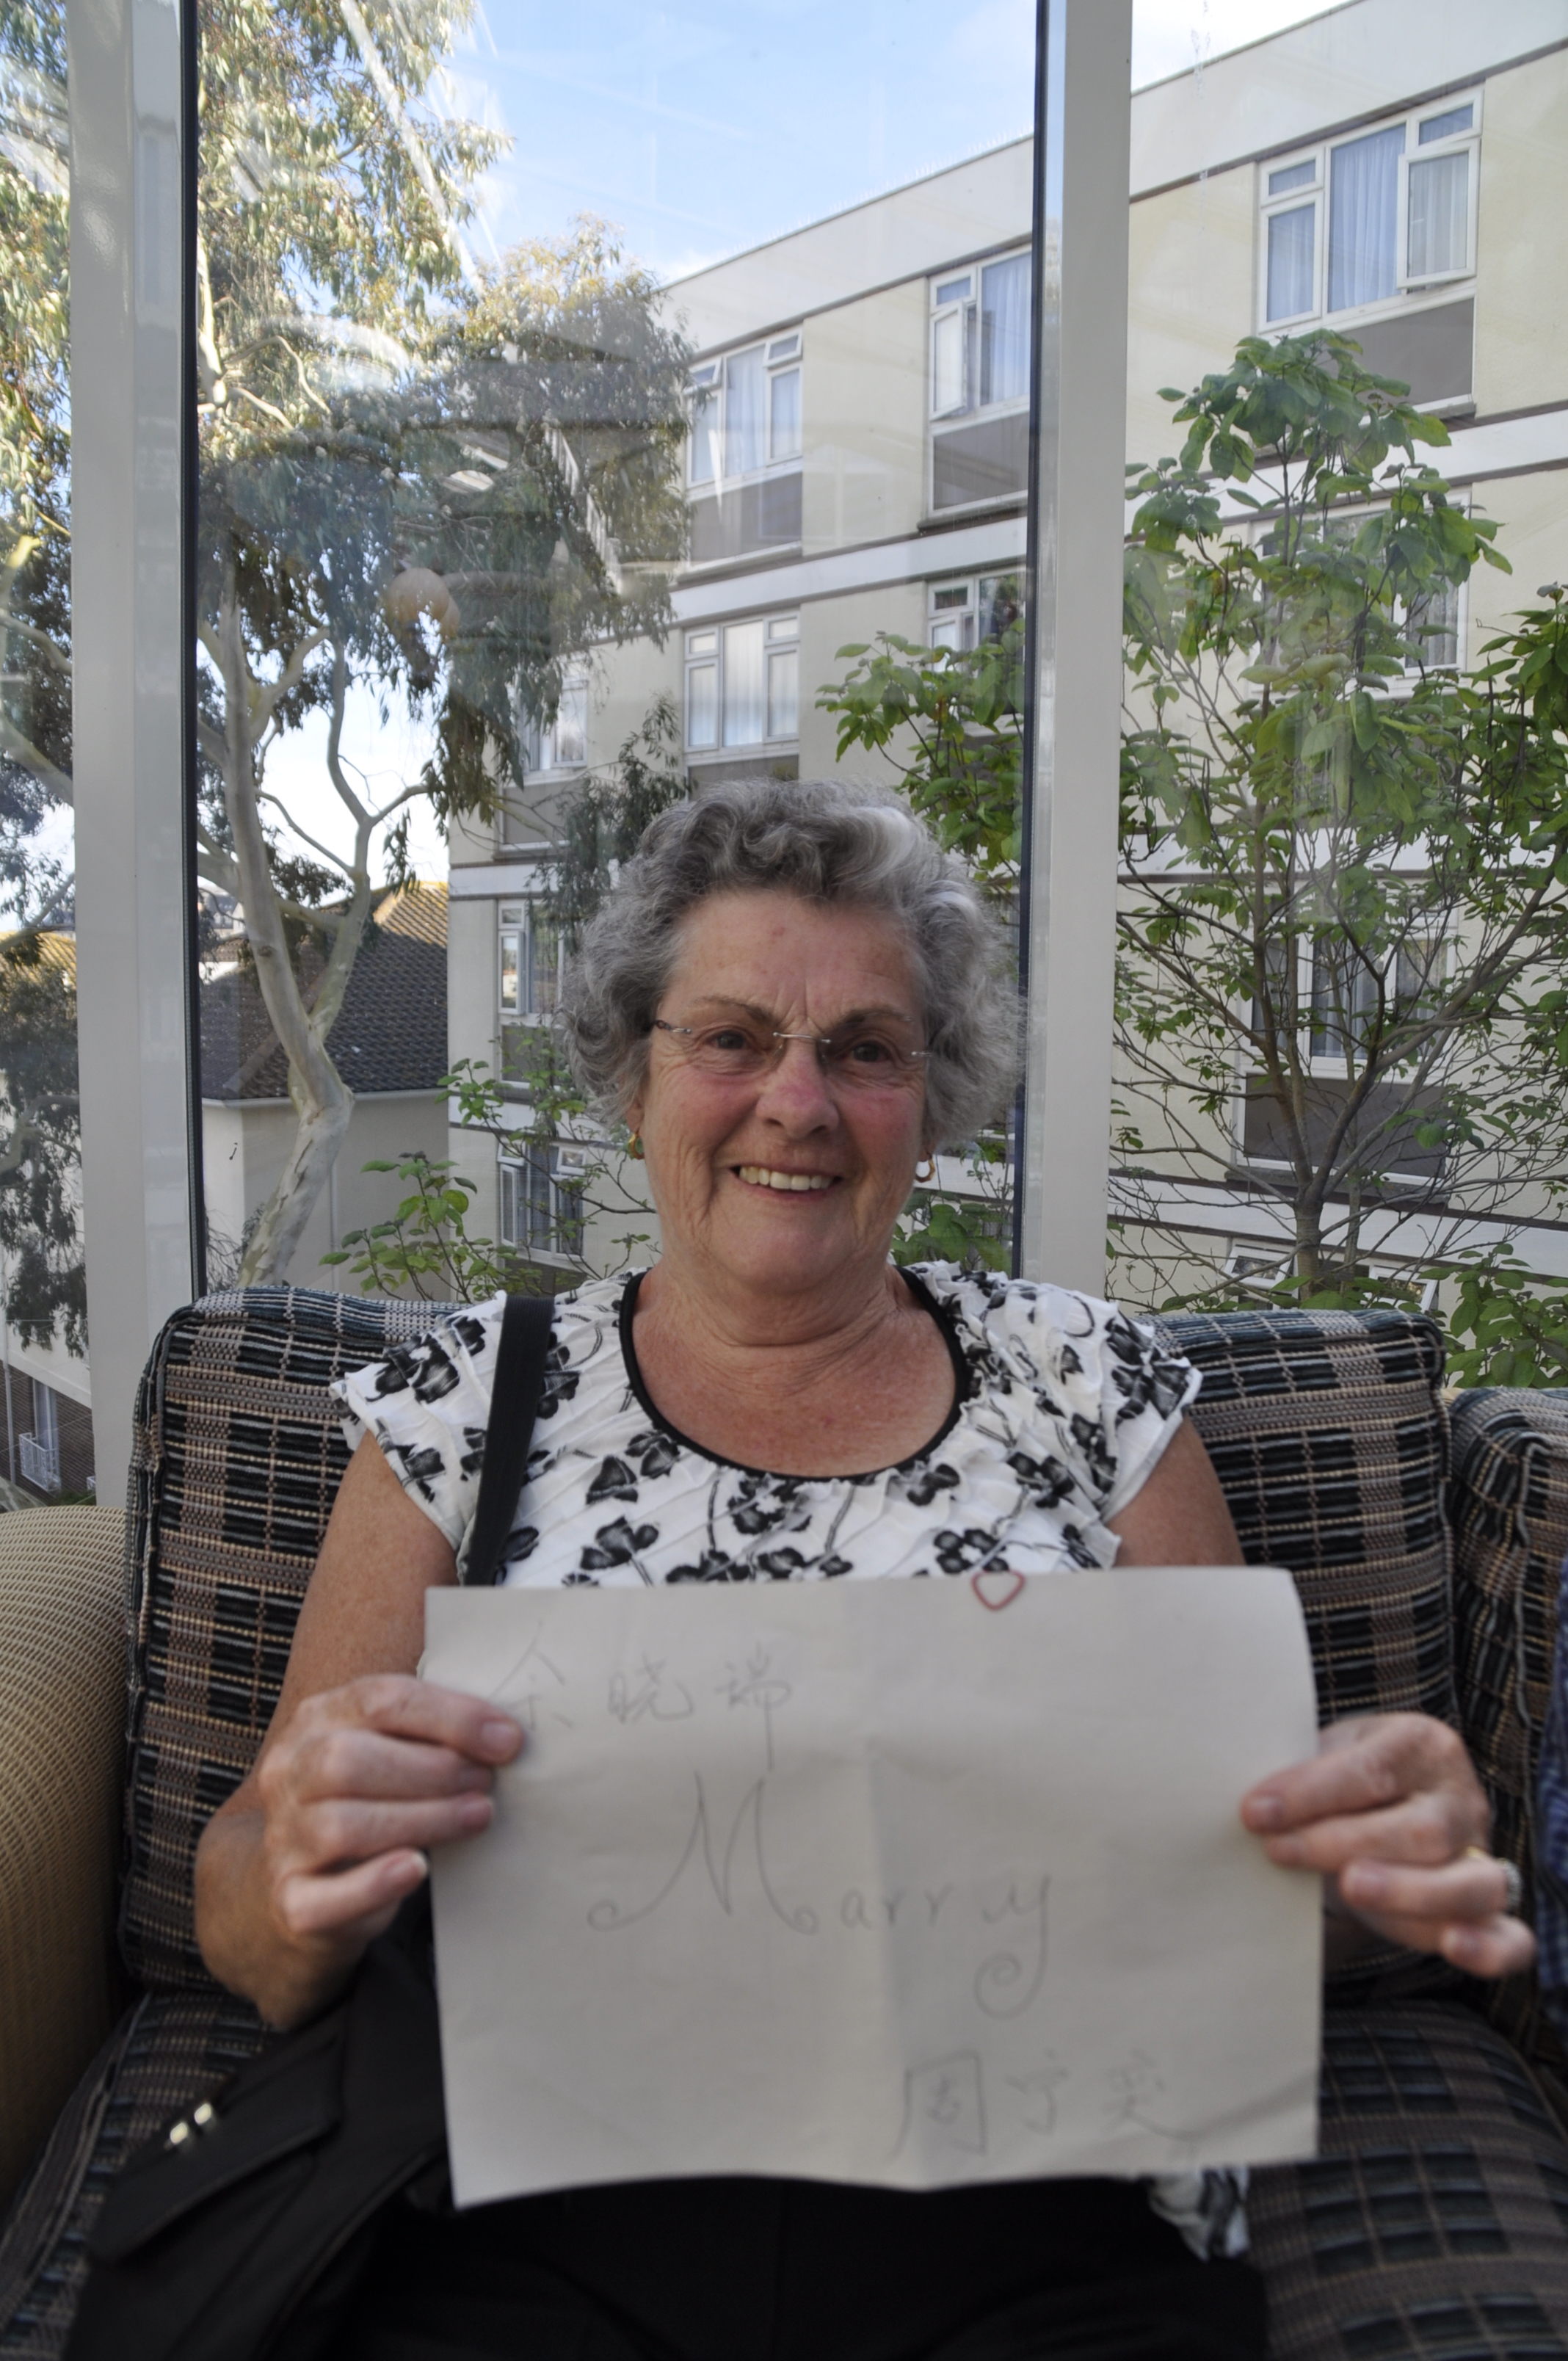 余晓瑞
Marry
周宁奕